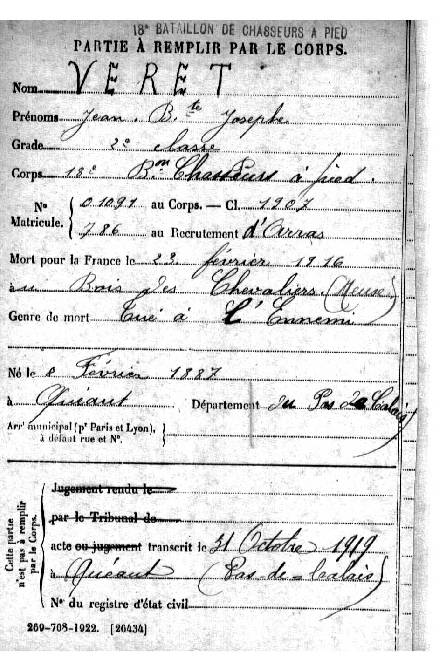 18e BATAILLON DE CHASSEURS A PIED
PARTIE À REMPLIR PAR LE CORPS.
Nom VERET
Prénoms Jean B.te Joseph
Grade 2e classe
Corps 18e B.on Chasseurs à pied.
Nos Matricule. { 01091 au Corps. — Cl. 1907
786 au Recrutement d'Arras
Mort pour la France le 23 février 1916
au Bois des Chevaliers (Meuse)
Genre de mort Tué à L'Ennemi
Né le 8 Février 1887
à Quéant Département du Pas de Calais
Arrt municipal (pr Paris et Lyon), à défaut rue et No. }
Cette partie n'est pas à remplir par le Corps.
Jugement rendu le
par le Tribunal de
acte ou jugement transcrit le 31 Octobre 1919
à Quéant (Pas-de-Calais)
No du registre d'état civil
269-708-1922. [26434]